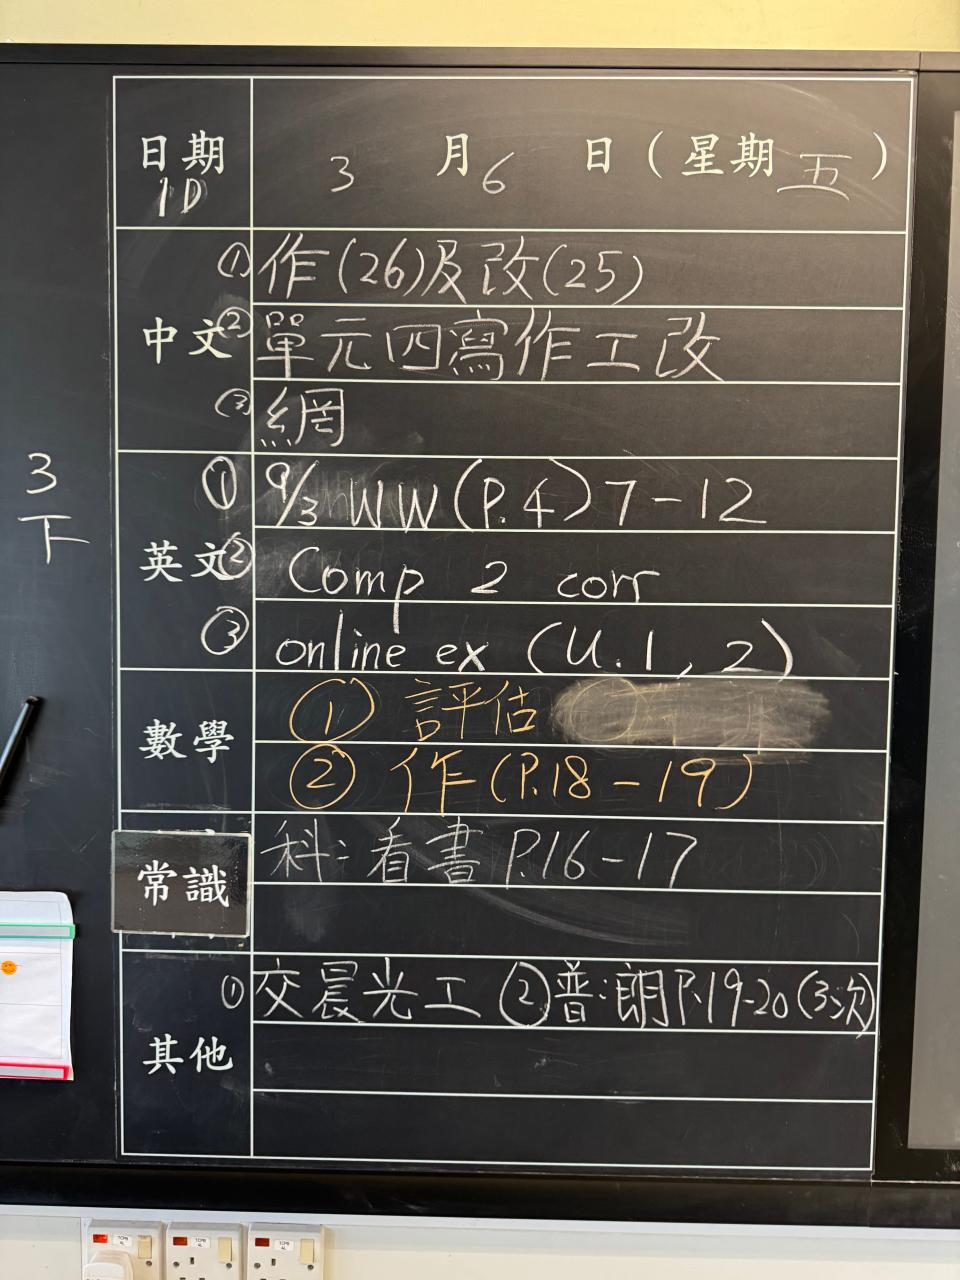 日期 3 月 6 日 (星期 五)
1D
中文
① 作(26)及改(25)
② 單元四寫作工改
③ 網
3
下
英文
① 9/3 WW (P.4) 7-12
② Comp 2 corr
③ online ex (U.1, 2)
數學
① 評估
② 作 (P.18-19)
常識
科: 看書 P.16-17
其他
① 交晨光工 ② 普:朗P.19-20 (3次)